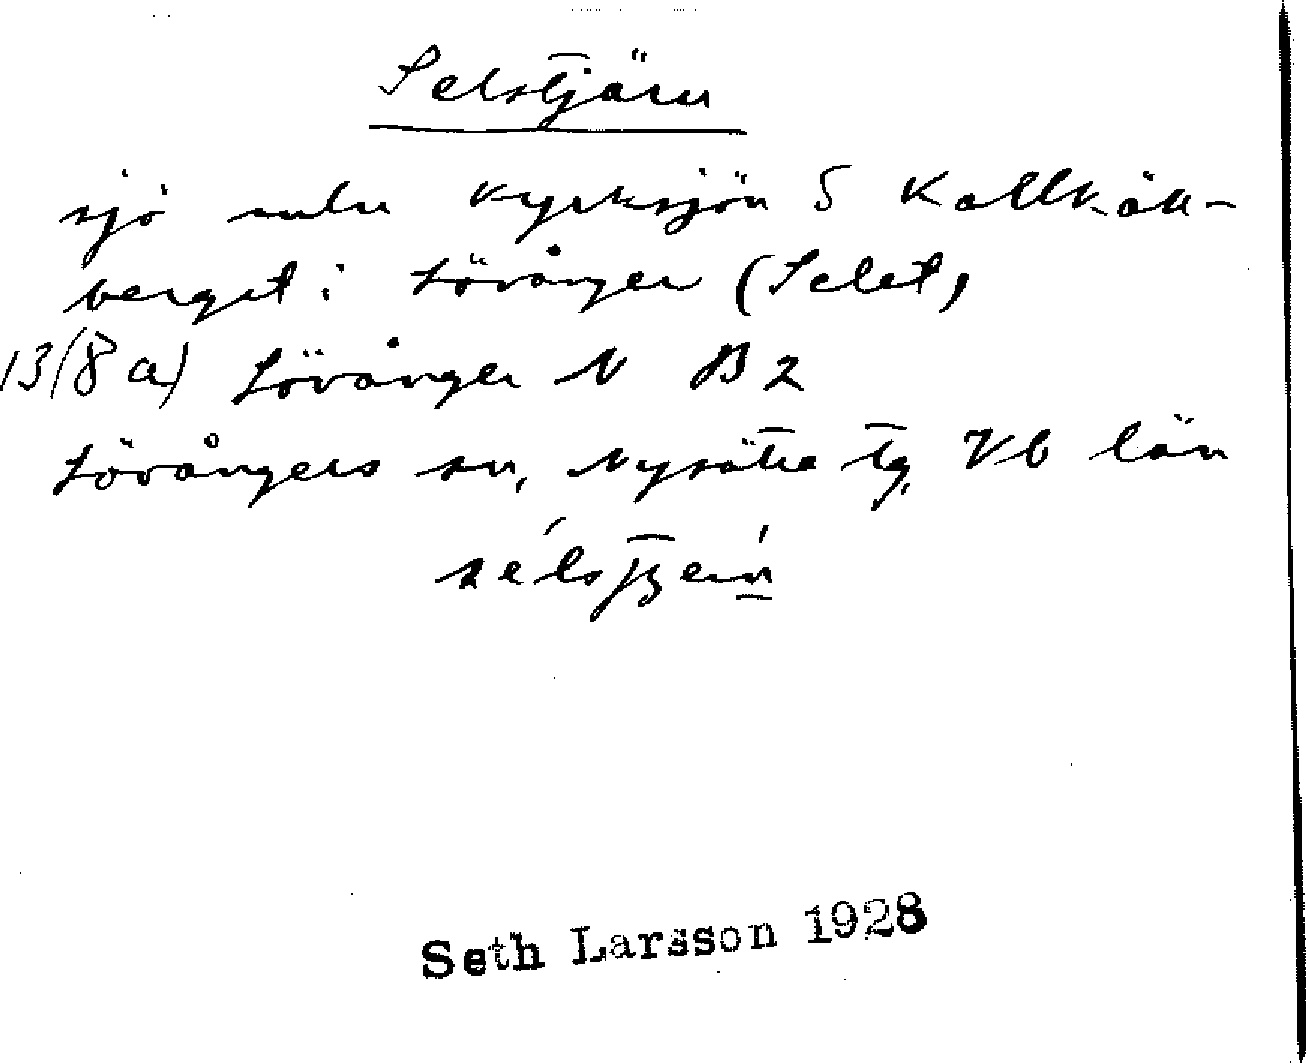 Selstjärn
sjö Kyrksjön S Kallkäll-
berget i Lövånger (Selet,
13(8 a) Lövånger N B 2
Lövångers sn, Nysätra tg, Vb län
Seth Larsson 1928